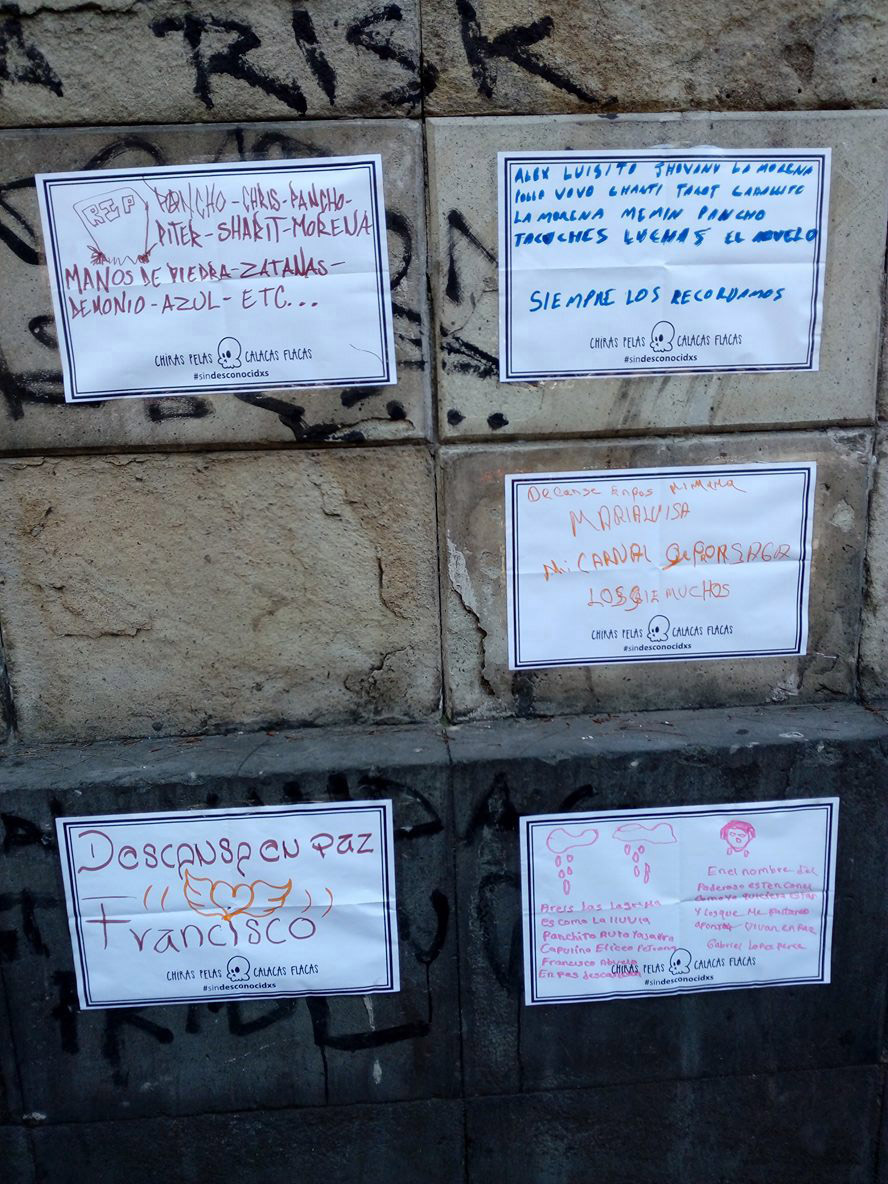 RISK
RIP
PANCHO - CHRIS - PANCHO -
PITER - SHARIT - MORENA
MANOS DE PIEDRA - ZATANAS -
DEMONIO - AZUL - ETC...
CHIRAS PELAS CALACAS FLACAS
#sindesconocidxs
ALEX LUISITO JHOVANY LA MORENA
POLLO VOVO CHANTI TAROT
LA MORENA MEMIN PANCHO
TACUCHES LUCHAS EL ABUELO
SIEMPRE LOS RECORDAMOS
CHIRAS PELAS CALACAS FLACAS
#sindesconocidxs
Decanse enpas mi mama
MARIALUISA
Mi CARNAL
MUCHOS
CHIRAS PELAS CALACAS FLACAS
#sindesconocidxs
Descansa en Paz
Francisco
CHIRAS PELAS CALACAS FLACAS
#sindesconocidxs
las lagrima
es como La lluvia
Panchito
Capulino Eliceo Petrona
Francisco Abuelo
En pas descansen
En el nombre del
Poderoso esten con el
como Yo quiciera estar
Y Los que Me faltaron
apontar Vivan en Paz
Gabriel Lopes
CHIRAS PELAS CALACAS FLACAS
#sindesconocidxs